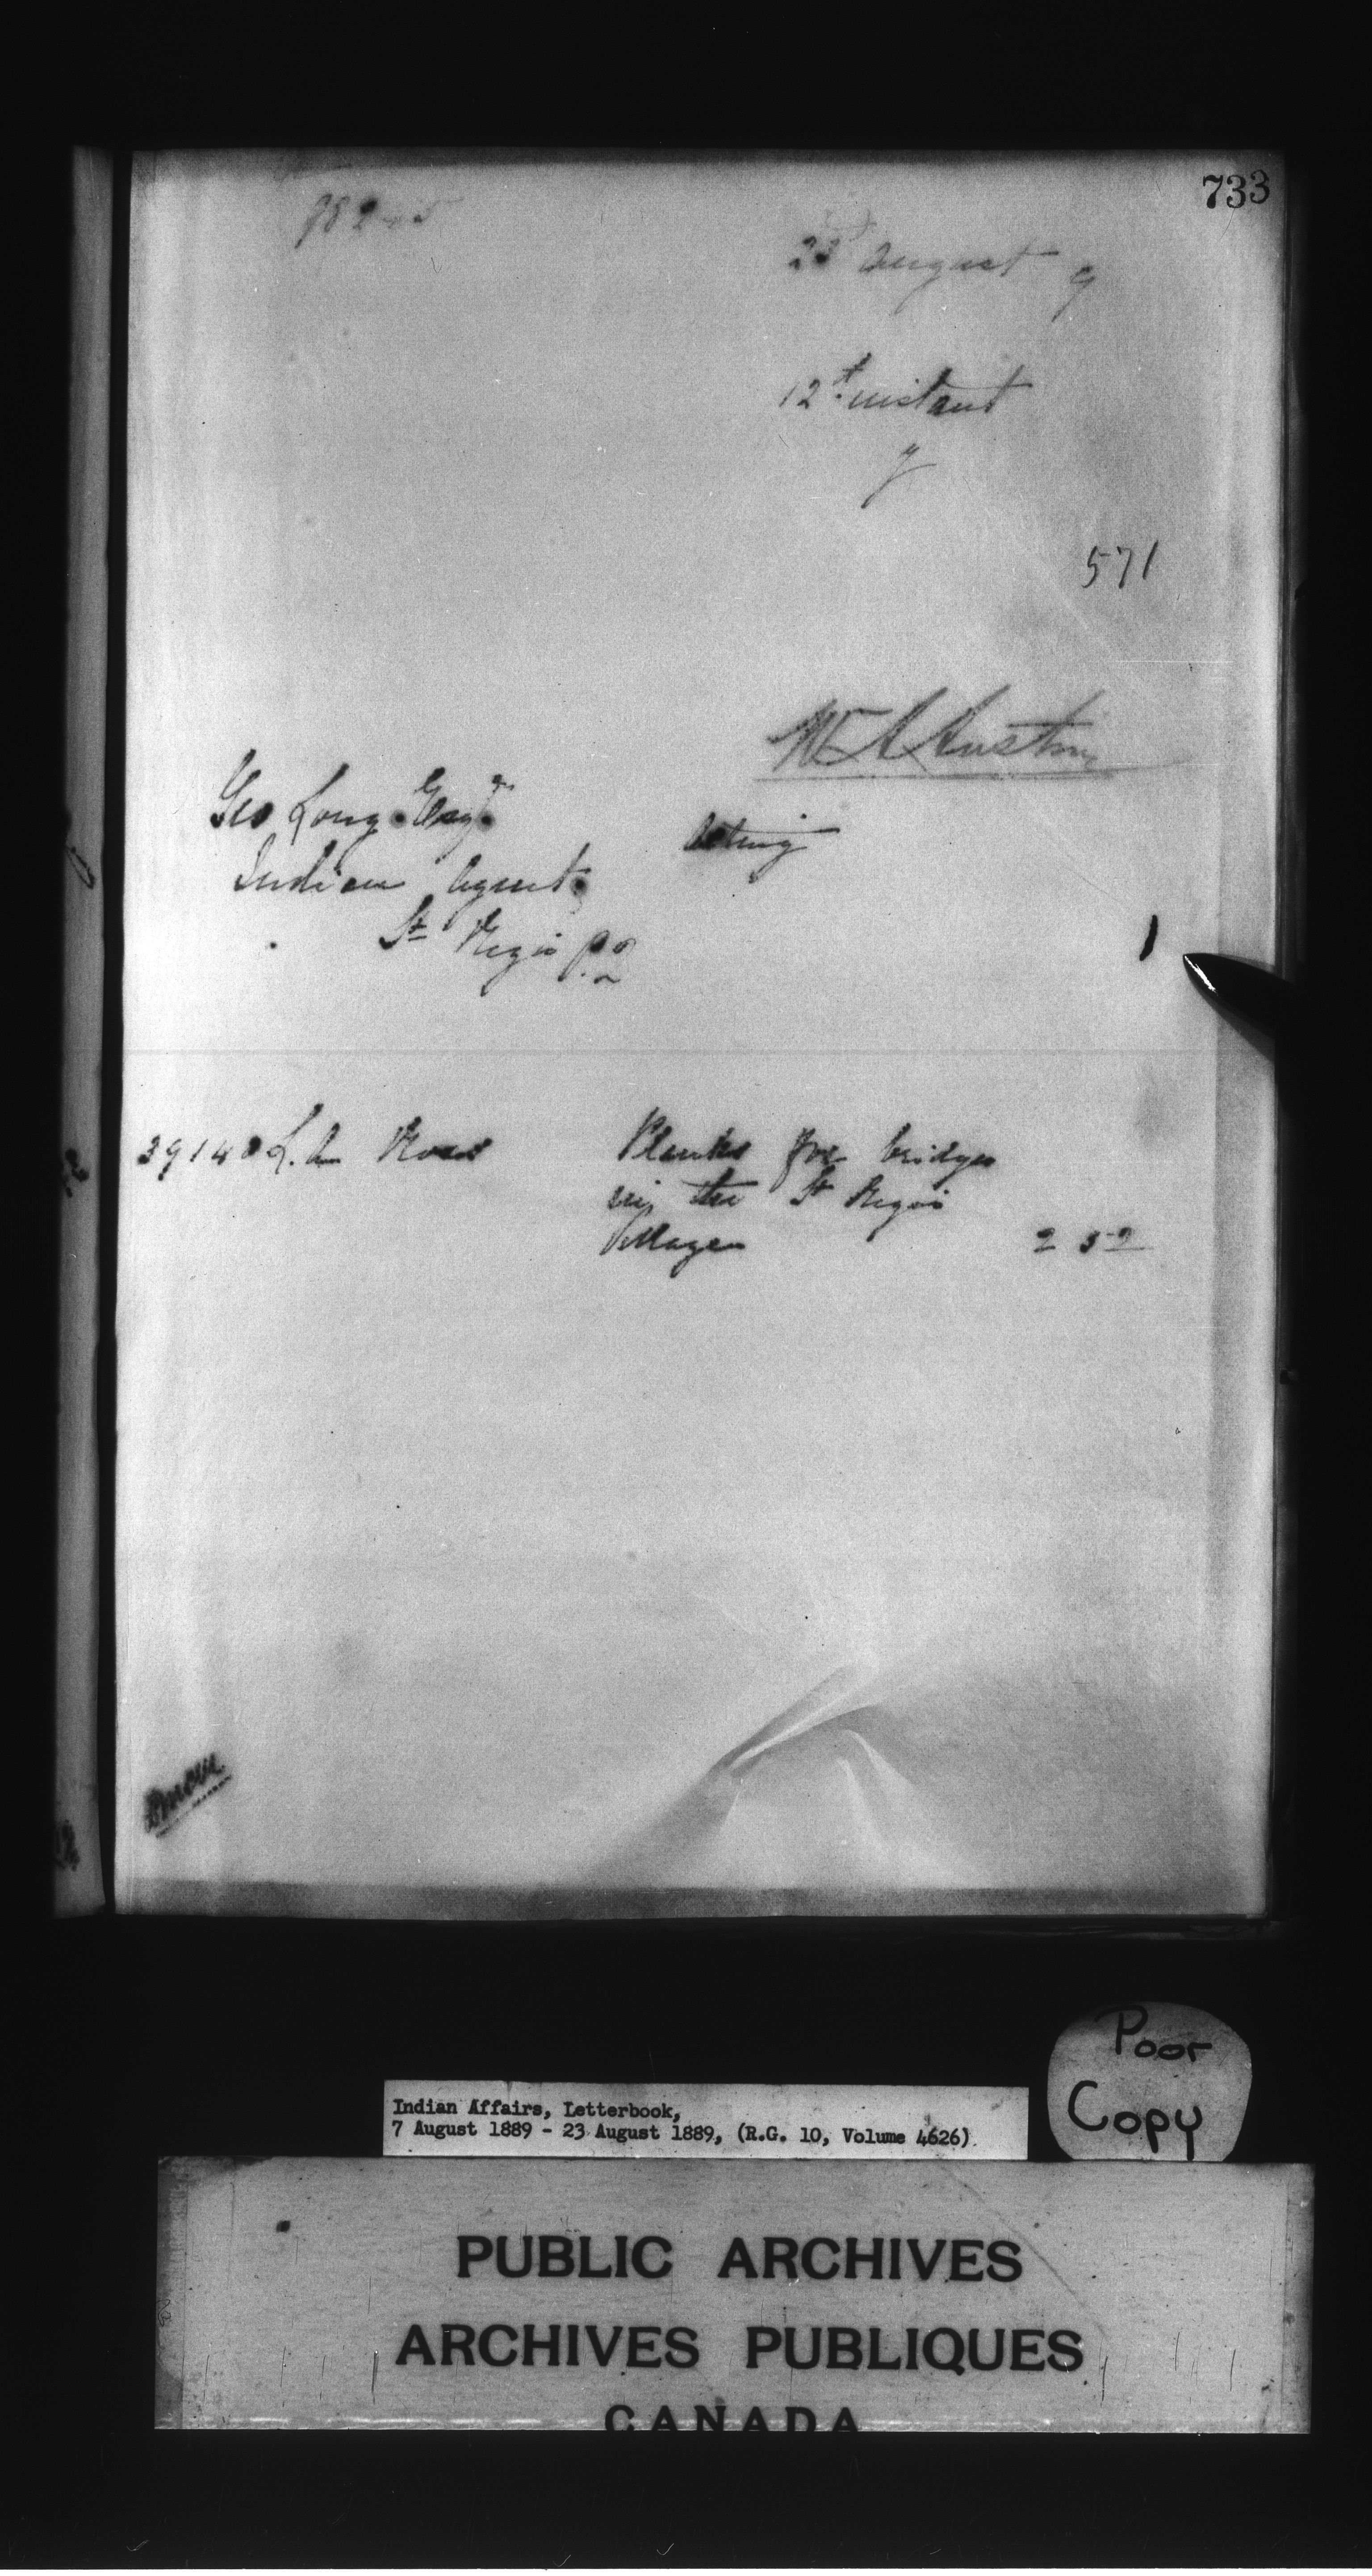 733
23d August 9
12th instant
y
571
W A Austin
Geo Long Esqr
Acting
Indian Agent
St Regis P.Q
1
39140 L. A Ross Planks for bridges
in the St Regis
Village 2 52
Poor
Copy
Indian Affairs, Letterbook,
7 August 1889 - 23 August 1889, (R.G. 10, Volume 4626)
PUBLIC ARCHIVES
ARCHIVES PUBLIQUES
CANADA